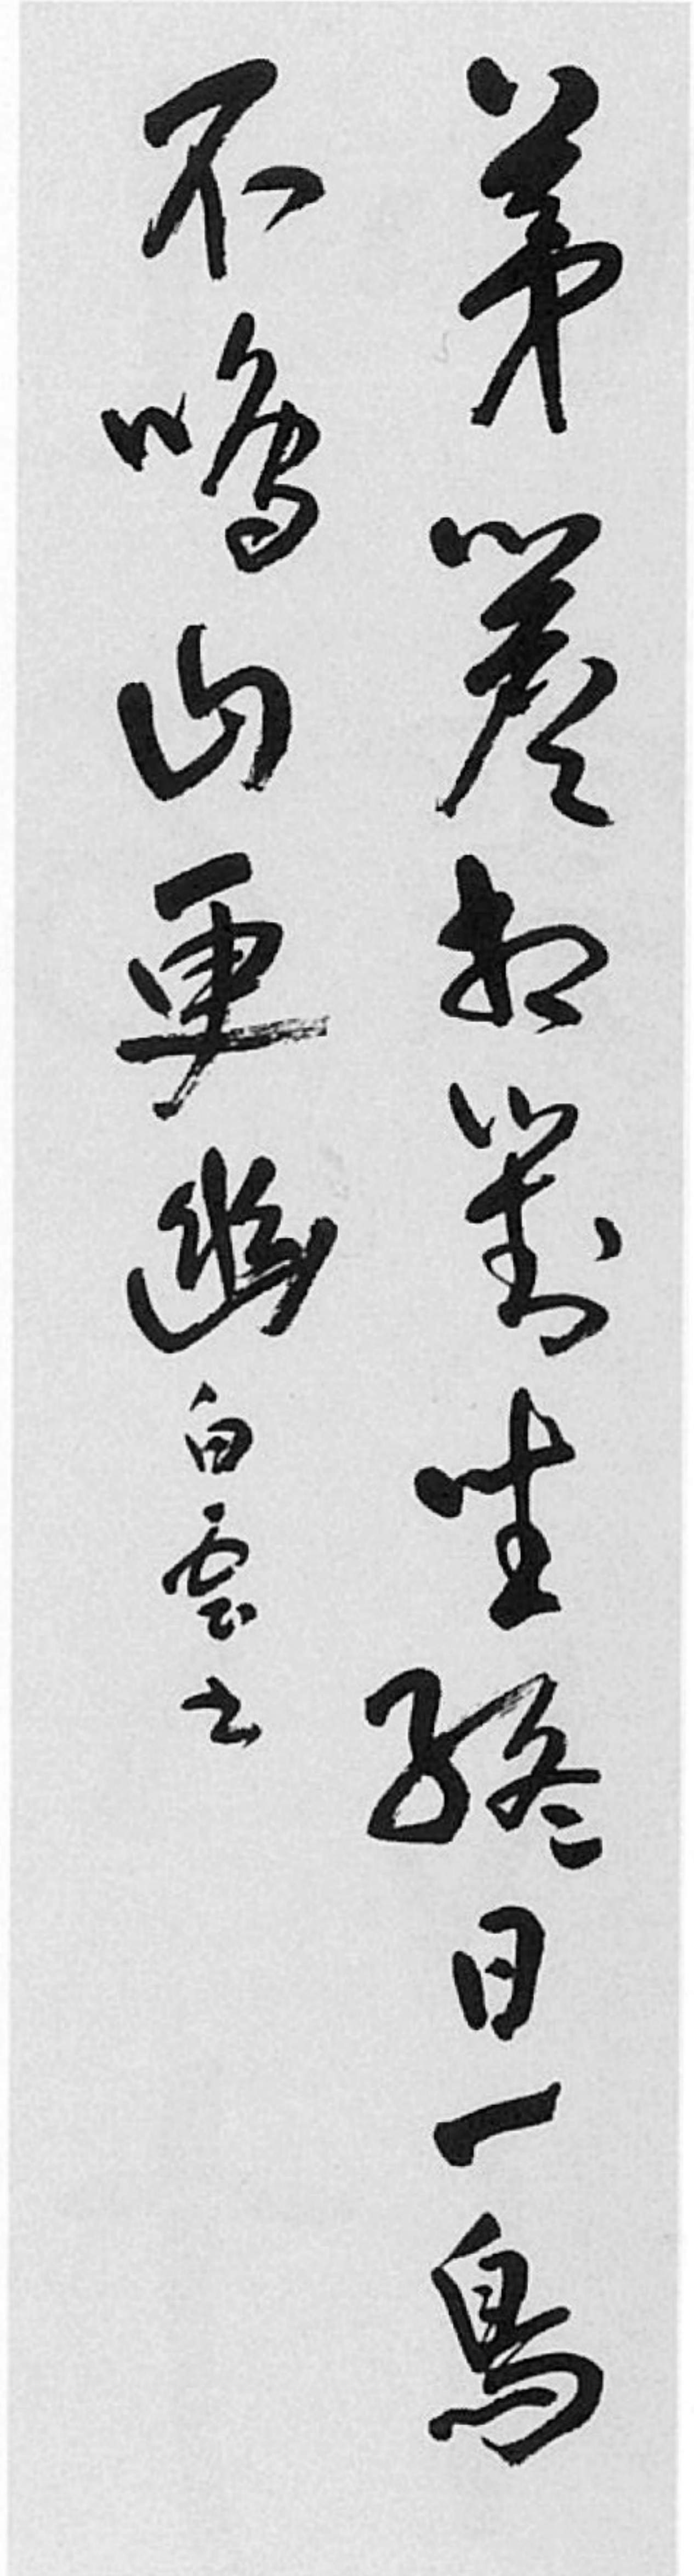 茅簷相對坐終日一鳥
不鳴山更幽白雲士